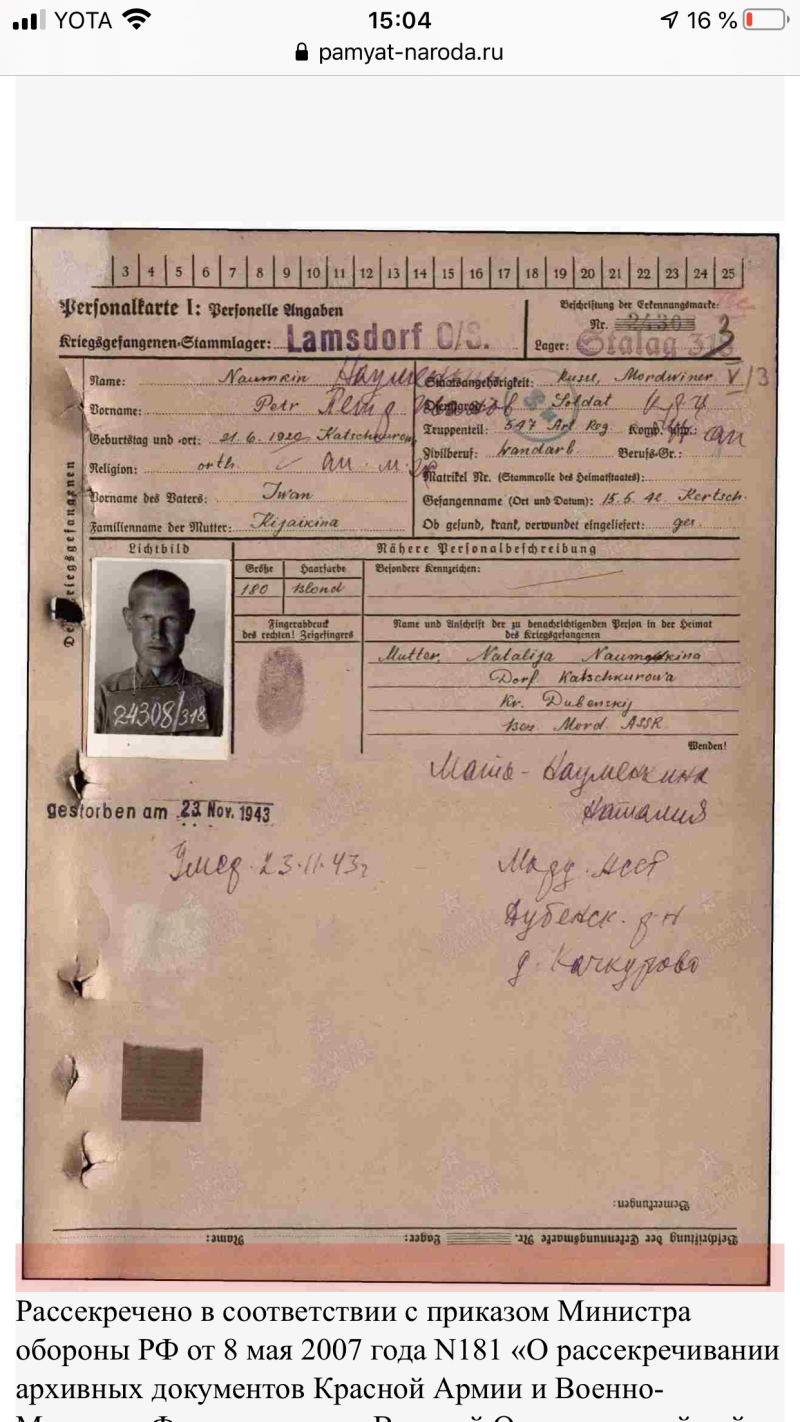 YOTA 15:04 16 %
pamyat-naroda.ru
3 4 5 6 7 8 9 10 11 12 13 14 15 16 17 18 19 20 21 22 23 24 25
Personalkarte I: Personelle Angaben
Kriegsgefangenen-Stammlager: Lamsdorf O/S.
Beschriftung der Erkennungsmarke:
Nr. 24308
Lager: Stalag 318
Name: Naumkin
Vorname: Petr Петр
Geburtstag und -ort: 21.6.1920 Katschkurowa
Religion: orth.
Vorname des Vaters: Iwan
Familienname der Mutter: Kijaikina
Staatsangehörigkeit: Russl, Mordwiner V/3
Dienstgrad: Soldat
Truppenteil: 547 Art Reg. Komp. usw.:
Zivilberuf: Berufs-Gr.:
Matrikel Nr. (Stammrolle des Heimatstaates):
Gefangennahme (Ort und Datum): 15.5.42 Kertsch.
Ob gesund, krank, verwundet eingeliefert: ges.
Des Kriegsgefangenen
Lichtbild
24308/318
Nähere Personalbeschreibung
Größe Haarfarbe Besondere Kennzeichen:
180 Blond
Fingerabdruck
des rechten! Zeigefingers
Name und Anschrift der zu benachrichtigenden Person in der Heimat
des Kriegsgefangenen
Mutter, Natalija
Dorf. Katschkurowa
Kr. Dubenskij
Bez. Mord. ASSR
Wenden!
Мать - Науменкина
Наталия
gestorben am 23. Nov. 1943
Умер. 23.11.43г
Морд. АССР
Дубенск. р-н
д. Качкурово
Bemerkungen:
Name: Lager: Beschriftung der Erkennungsmarke Nr.
Рассекречено в соответствии с приказом Министра
обороны РФ от 8 мая 2007 года N181 «О рассекречивании
архивных документов Красной Армии и Военно-